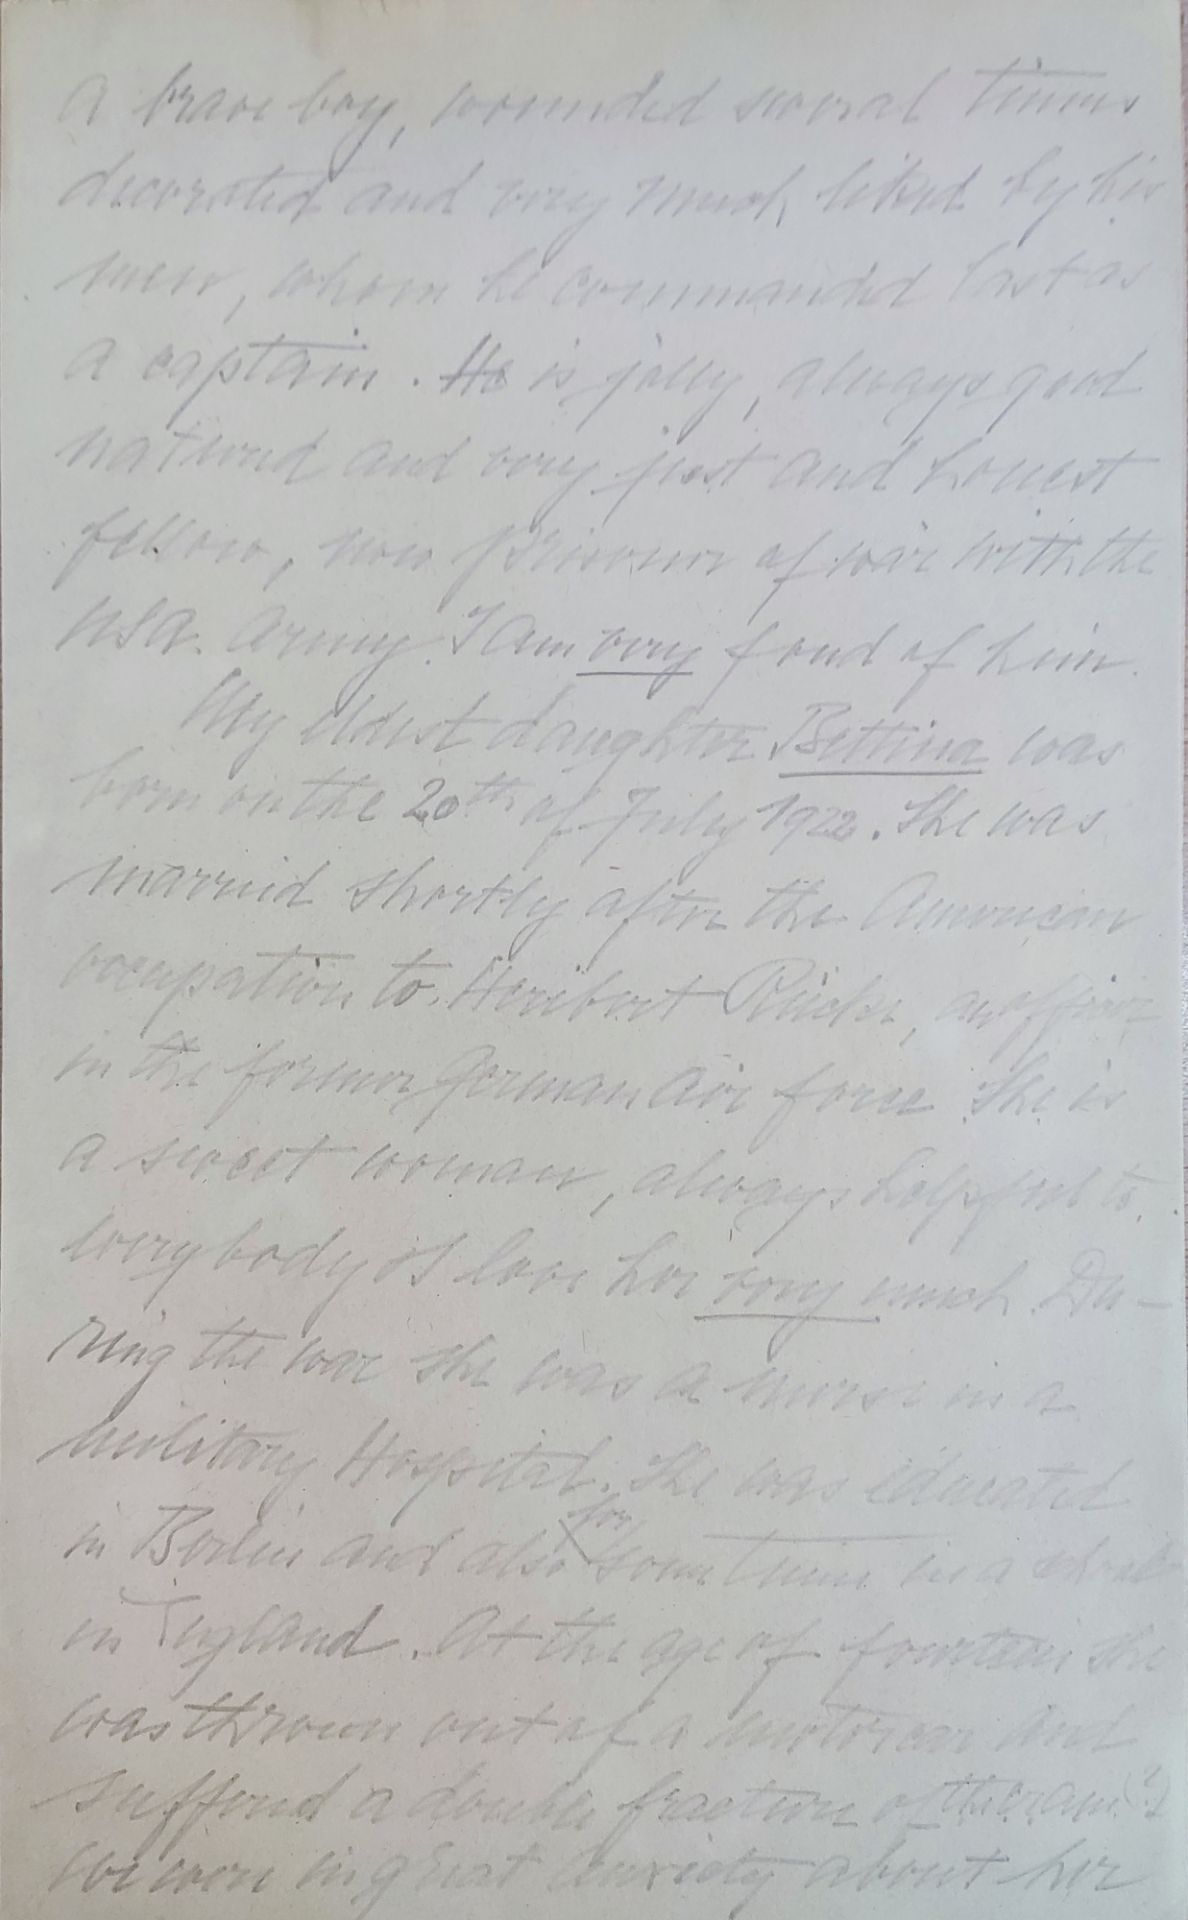 a brave boy, wounded several times
decorated and very much liked by his
men, whom he commanded last as
a captain. He is jolly, always good
natured and very just and honest
fellow, now prisoner of war with the
USA. Army. I am very fond of him.
My eldest daughter Bettina was
born on the 20th of July 1922. She was
married shortly after the American
occupation to Heribert, an officer
in the former German air force. She is
a sweet woman, always helpful to
everybody I love her very much. Du-
ring the war she was a nurse in a
military Hospital. She was educated
in Berlin and also for some time in a school
in England. At the age of fourteen she
was thrown out of a motorcar and
suffered a double fraction of the (?)
we were in great anxiety about her